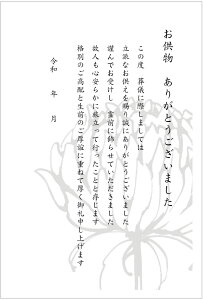 お供物　ありがとうございました
この度　葬儀に際しましては
立派なお供えを賜り誠にありがとうございました
謹んでお受けし　霊前に飾らせていただきました
故人も心安らかに旅立って行ったことと存じます
格別のご高配と生前のご厚誼に重ねて厚く御礼申し上げます
令和　年　月